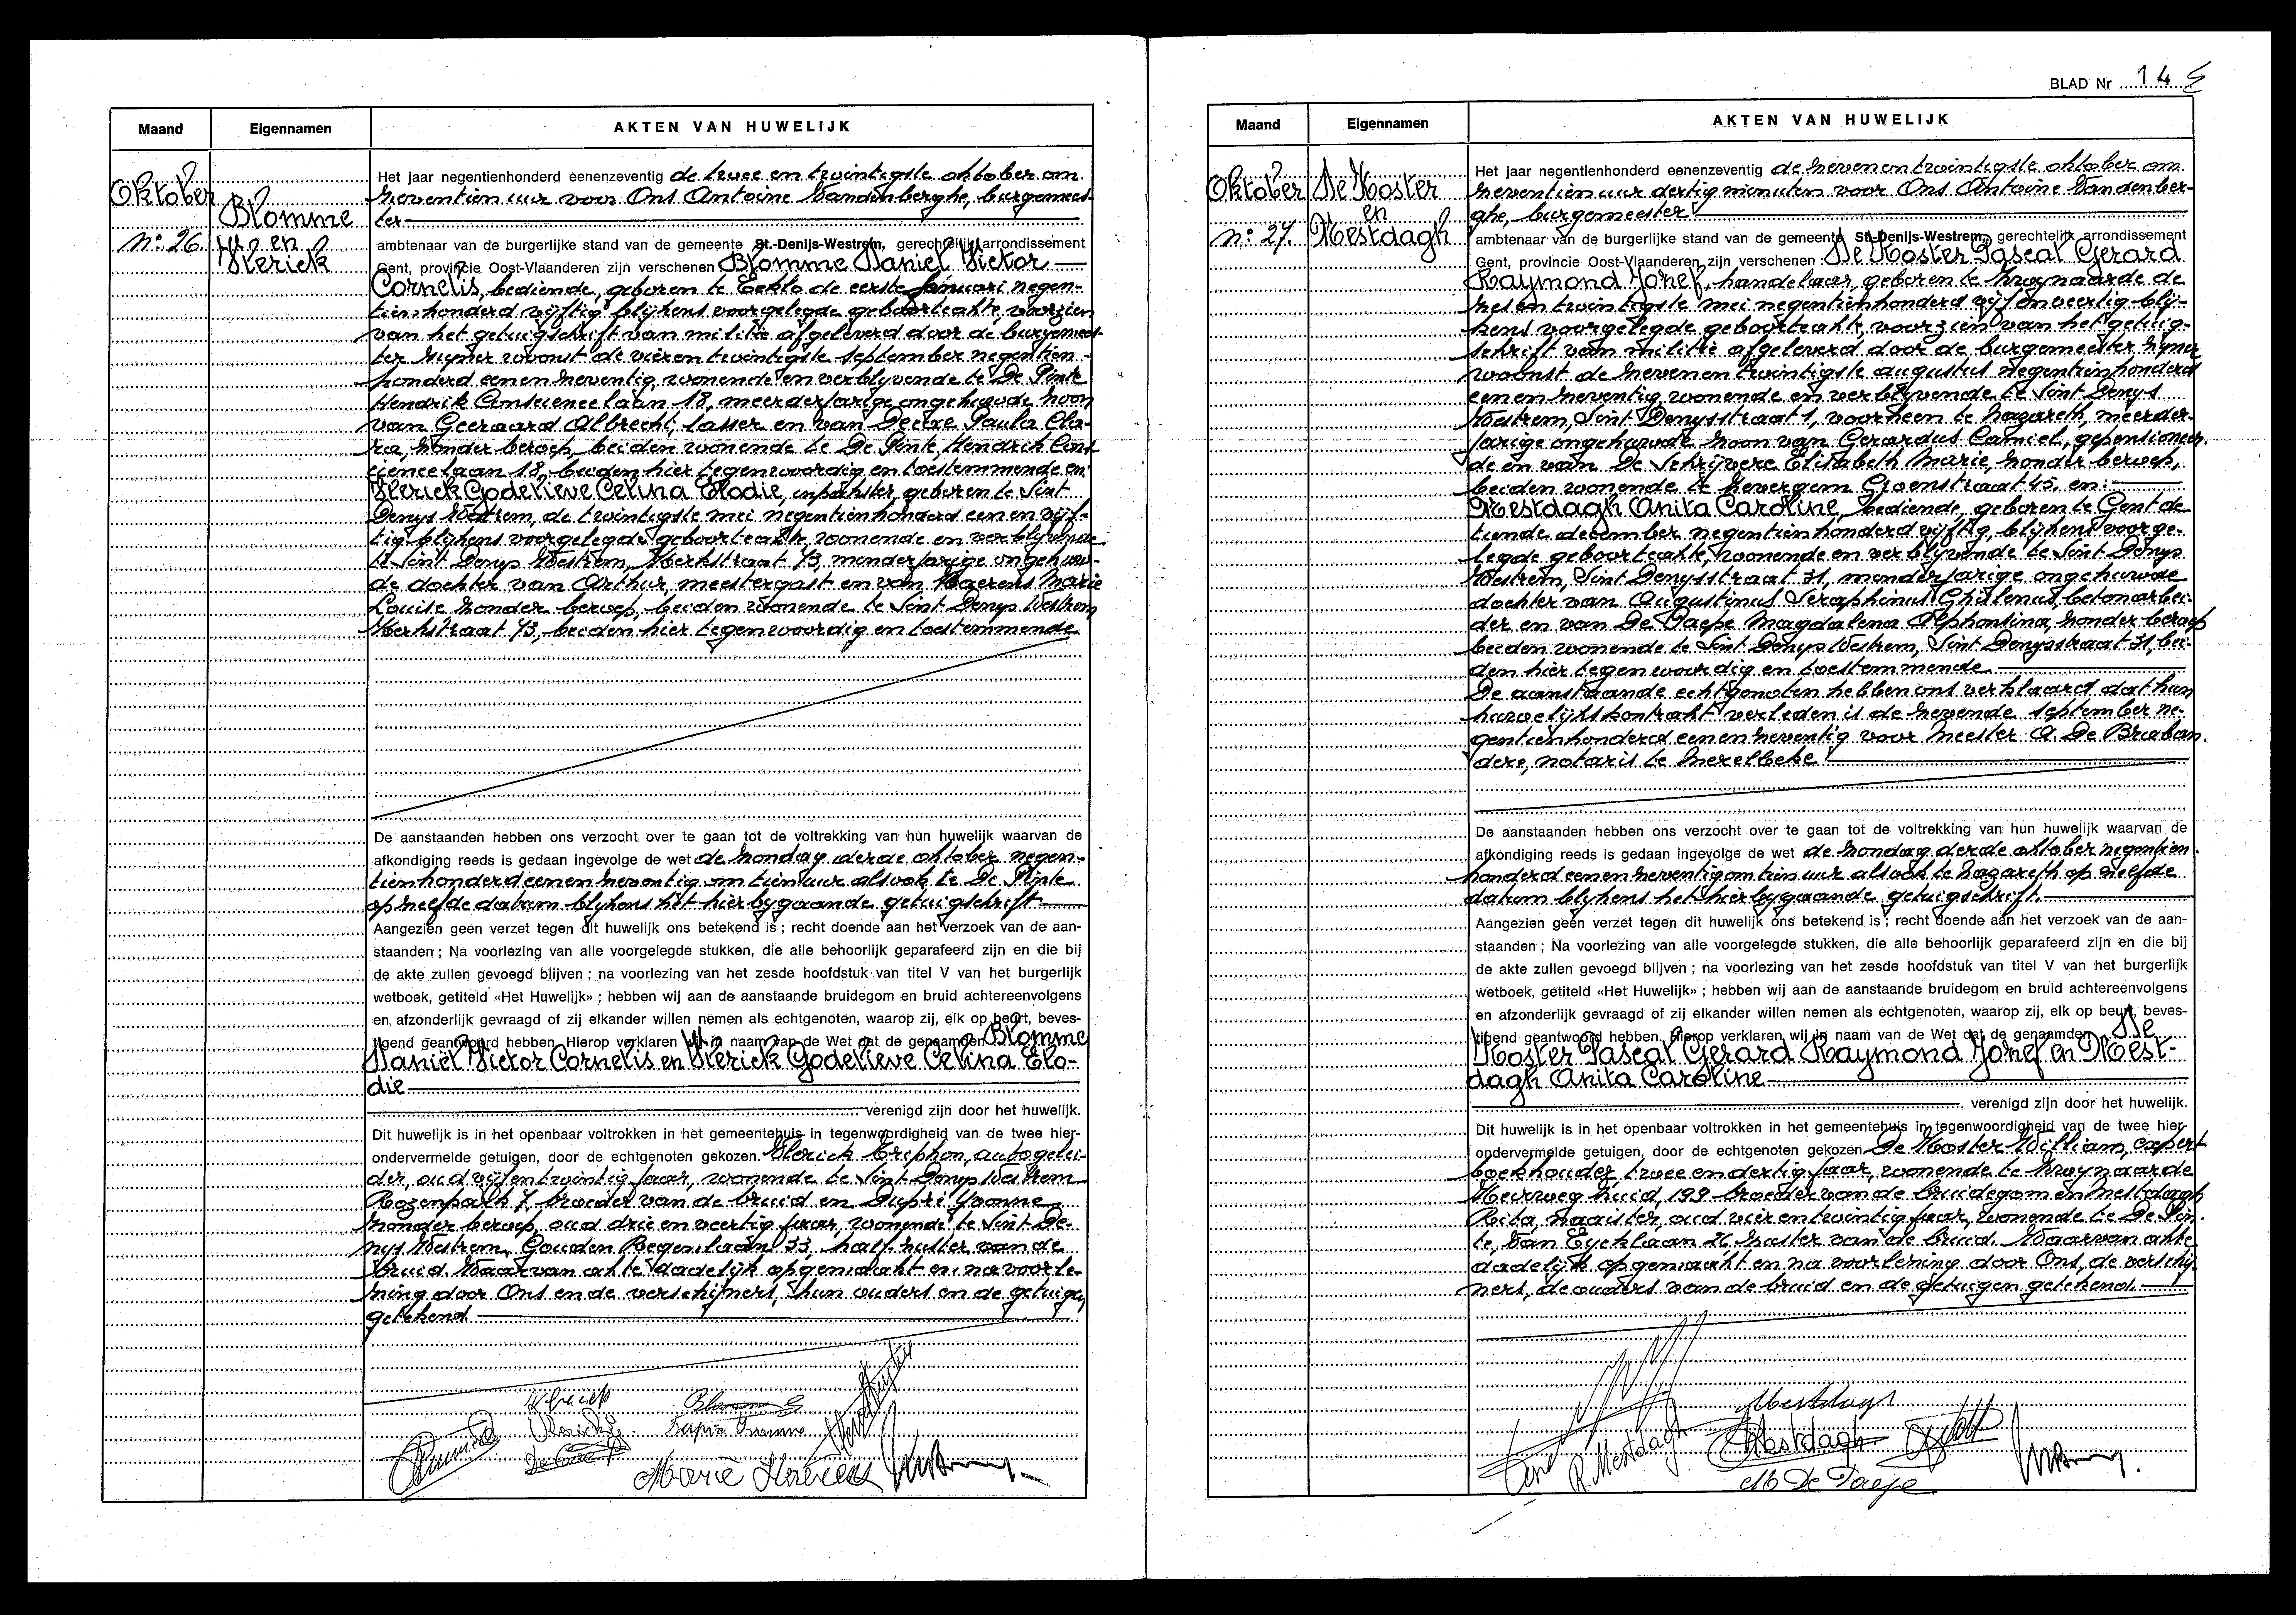 Maand Eigennamen AKTEN VAN HUWELIJK
Oktober
n° 26.
Blomme
en
Sterick
Het jaar negentienhonderd eenenzeventig de twee en twintigste oktober om
zeventien uur voor Ons Antoine Vandenberghe, burgemees-
ter
ambtenaar van de burgerlijke stand van de gemeente St.-Denijs-Westrem, gerechtelijk arrondissement
Gent, provincie Oost-Vlaanderen zijn verschenen Blomme Daniel Victor
Cornelis, bediende, geboren te Eeklo de eerste januari negen-
tienhonderd vijftig blijkens voorgelegde geboorteakte, voorzien
van het getuigschrift van militie afgeleverd door de burgemees-
ter zijner woonst de vierentwintigste september negentien-
honderd eenenzeventig, wonende en verblijvende te De Pinte
Hendrik Consciencelaan 18, meerderjarige ongehuwde zoon
van Geeraard Albrecht, lasser en van Paula Cla-
ra, zonder beroep, beiden wonende te De Pinte Hendrick Cons-
ciencelaan 18, beiden hier tegenwoordig en toestemmende en
Godelieve Celina Elodie, inpakster, geboren te Sint
Denys Westrem, de twintigste mei negentienhonderd eenenvijf-
tig blijkens voorgelegde geboorteakte, wonende en verblijvende
te Sint Denys Westrem, Kerkstraat 73, minderjarige ongehuw-
de dochter van Arthur, meestergast en van Marie
Louise zonder beroep, beiden wonende te Sint Denys Westrem
Kerkstraat 73, beiden hier tegenwoordig en toestemmende
De aanstaanden hebben ons verzocht over te gaan tot de voltrekking van hun huwelijk waarvan de
afkondiging reeds is gedaan ingevolge de wet de zondag derde oktober negen-
tienhonderd eenenzeventig om tien uur alsook te De Pinte
op zelfde datum blijkens het hierbygaande getuigschrift
Aangezien geen verzet tegen dit huwelijk ons betekend is ; recht doende aan het verzoek van de aan-
staanden ; Na voorlezing van alle voorgelegde stukken, die alle behoorlijk geparafeerd zijn en die bij
de akte zullen gevoegd blijven ; na voorlezing van het zesde hoofdstuk van titel V van het burgerlijk
wetboek, getiteld «Het Huwelijk» ; hebben wij aan de aanstaande bruidegom en bruid achtereenvolgens
en afzonderlijk gevraagd of zij elkander willen nemen als echtgenoten, waarop zij, elk op beurt, beves-
tigend geantwoord hebben. Hierop verklaren wij in naam van de Wet dat de genaamden Blomme
Daniel Victor Cornelis en Godelieve Celina Elo-
die
verenigd zijn door het huwelijk.
Dit huwelijk is in het openbaar voltrokken in het gemeentehuis in tegenwoordigheid van de twee hier-
ondervermelde getuigen, door de echtgenoten gekozen. autogelei-
der, oud vijfentwintig jaar, wonende te Sint Denys Westrem
Rozenpark 7, broeder van de bruid en Dupré Yvonne
zonder beroep, oud drie en veertig jaar, wonende te Sint De-
nys Westrem, Gouden Regenlaan 33, half-zuster van de
bruid. Waarvan akte dadelijk opgemaakt en na voorle-
zing door Ons en de verschijners, hun ouders en de getuigen
getekend
Blomme G
Dupré Yvonne
BLAD Nr 14
Maand Eigennamen AKTEN VAN HUWELIJK
Oktober
n° 27.
De Koster
en
Mestdagh
Het jaar negentienhonderd eenenzeventig de zevenentwintigste oktober om
zeventien uur dertig minuten voor Ons Antoine Vandenber-
ghe, burgemeester
ambtenaar van de burgerlijke stand van de gemeente St.-Denijs-Westrem, gerechtelijk arrondissement
Gent, provincie Oost-Vlaanderen zijn verschenen : De Koster Pascal Gerard
Raymond Jozef, handelaar, geboren te Zwijnaarde de
zesentwintigste mei negentienhonderd vijfenveertig blij-
kens voorgelegde geboorteakte, voorzien van het getuig-
schrift van militie afgeleverd door de burgemeester zijner
woonst de zevenentwintigste augustus negentienhonderd
eenenzeventig, wonende en verblijvende te Sint Denys
Westrem, Sint Denysstraat 1, voorheen te Nazareth, meerder-
jarige ongehuwde zoon van Gerardus Camiel, gepensioneer-
de en van De Schrijvere Elisabeth Marie, zonder beroep,
beiden wonende te Zevergem Groenstraat 45. en :
Mestdagh Anita Caroline, bediende, geboren te Gent de
tiende december negentienhonderd vijftig, blijkens voorge-
legde geboorteakte, wonende en verblijvende te Sint Denys
Westrem, Sint Denysstraat 31, minderjarige ongehuwde
dochter van Augustinus Seraphinus Ghislenus, betonarbei-
der en van De Paepe Magdalena Alphonsina, zonder beroep
beiden wonende te Sint Denys Westrem, Sint Denysstraat 31, bei-
den hier tegenwoordig en toestemmende
De aanstaande echtgenoten hebben ons verklaard dat hun
huwelijkskontrakt verleden is de zevende september ne-
gentienhonderd eenenzeventig voor Meester A. De Braban-
dere, notaris te Merelbeke
De aanstaanden hebben ons verzocht over te gaan tot de voltrekking van hun huwelijk waarvan de
afkondiging reeds is gedaan ingevolge de wet de zondag derde oktober negentien-
honderd eenenzeventig om tien uur alsook te Nazareth op zelfde
datum blijkens het hierbygaande getuigschrift.
Aangezien geen verzet tegen dit huwelijk ons betekend is ; recht doende aan het verzoek van de aan-
staanden ; Na voorlezing van alle voorgelegde stukken, die alle behoorlijk geparafeerd zijn en die bij
de akte zullen gevoegd blijven ; na voorlezing van het zesde hoofdstuk van titel V van het burgerlijk
wetboek, getiteld «Het Huwelijk» ; hebben wij aan de aanstaande bruidegom en bruid achtereenvolgens
en afzonderlijk gevraagd of zij elkander willen nemen als echtgenoten, waarop zij, elk op beurt, beves-
tigend geantwoord hebben. Hierop verklaren wij in naam van de Wet dat de genaamden De
Koster Pascal Gerard Raymond Jozef en Mest-
dagh Anita Caroline
verenigd zijn door het huwelijk.
Dit huwelijk is in het openbaar voltrokken in het gemeentehuis in tegenwoordigheid van de twee hier-
ondervermelde getuigen, door de echtgenoten gekozen De Koster William, expert
boekhouder, twee en dertig jaar, wonende te Zwijnaarde
Heerweg Zuid, 199 broeder van de bruidegom en Mestdagh
Rita, naaister, oud vier en twintig jaar, wonende te De Pin-
te, Van Eycklaan 26 zuster van de bruid. Waarvan akte
dadelijk opgemaakt en na voorlezing door Ons, de verschij-
ners, de ouders van de bruid en de getuigen getekend.
Mestdagh
R. Mestdagh
Mestdagh
M De Paepe